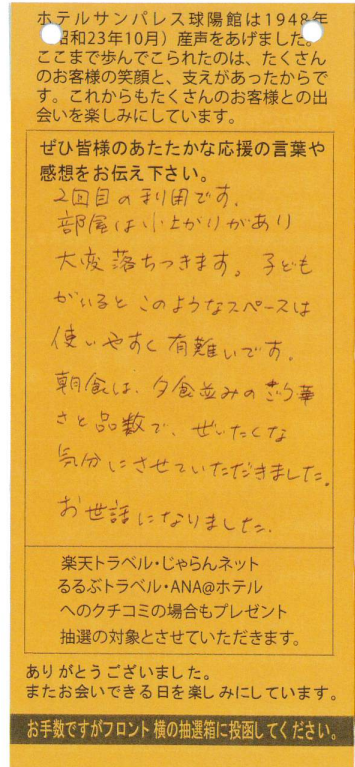 ホテルサンパレス球陽館は1948年
昭和23年10月）産声をあげました。
ここまで歩んでこられたのは、たくさん
のお客様の笑顔と、支えがあったからで
す。これからもたくさんのお客様との出
会いを楽しみにしています。
ぜひ皆様のあたたかな応援の言葉や
感想をお伝え下さい。
2回目の利用です.
部屋は小上がりがあり
大変落ちつきます。子ども
がいるとこのようなスペースは
使いやすく有難いです。
朝食は、夕食並みのごう華
さと品数で、ぜいたくな
気分にさせていただきました。
お世話になりました.
楽天トラベル・じゃらんネット
るるぶトラベル・ANA@ホテル
へのクチコミの場合もプレゼント
抽選の対象とさせていただきます。
ありがとうございました。
またお会いできる日を楽しみにしています。
お手数ですがフロント横の抽選箱に投函してください。